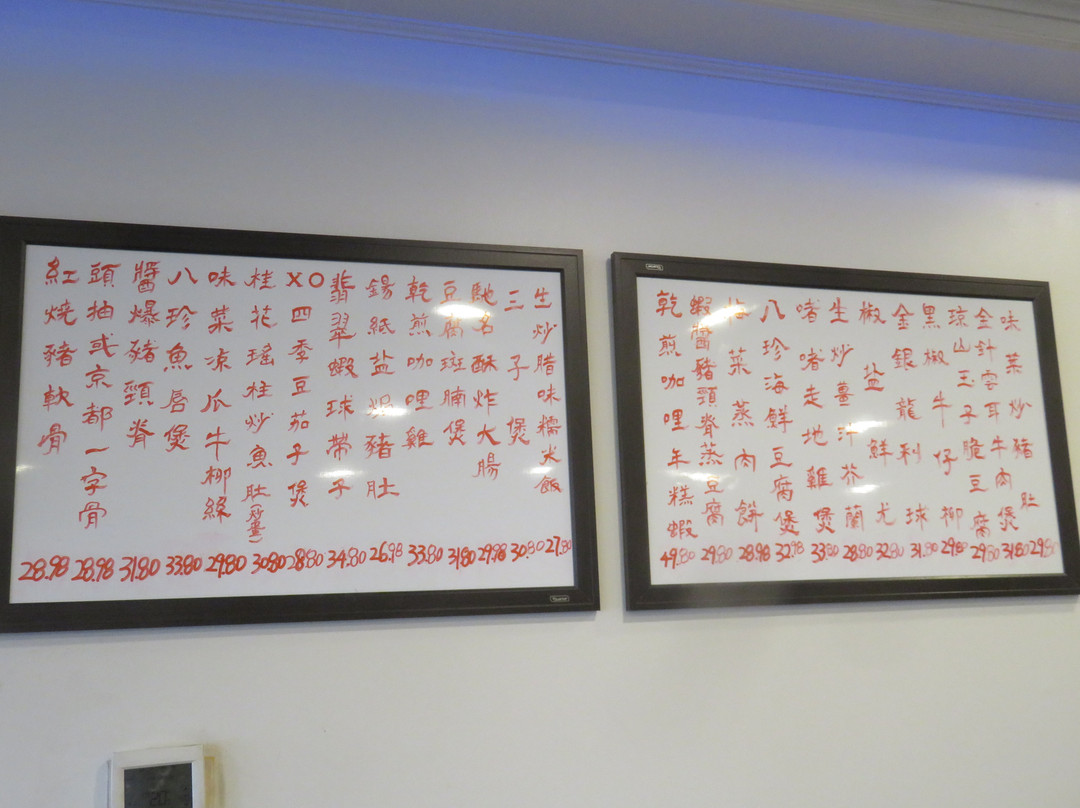 紅燒豬軟骨
28.98
頭抽或京都一字骨
28.98
醬爆豬頸脊
31.80
八珍魚唇煲
33.80
味菜涼瓜牛柳絲
29.80
桂花瑤柱炒魚肚
30.80
XO四季豆茄子煲
28.80
翡翠蝦球帶子
34.80
錫紙盐焗豬肚
26.98
乾煎咖哩雞
33.80
豆腐斑腩煲
31.80
馳名酥炸大腸
29.98
三子煲
30.80
生炒腊味糯米飯
27.80
乾煎咖哩年糕蝦
49.80
蝦醬豬頸脊蒸豆腐
29.80
梅菜蒸肉餅
28.98
八珍海鮮豆腐煲
32.98
啫啫走地雞煲
33.80
生炒薑汁芥蘭
28.80
椒盐鮮尤
32.80
金銀龍利球
31.80
黑椒牛仔柳
29.80
琼山玉子脆豆腐
29.80
金針耳牛肉煲
31.80
味菜炒豬肚
29.80